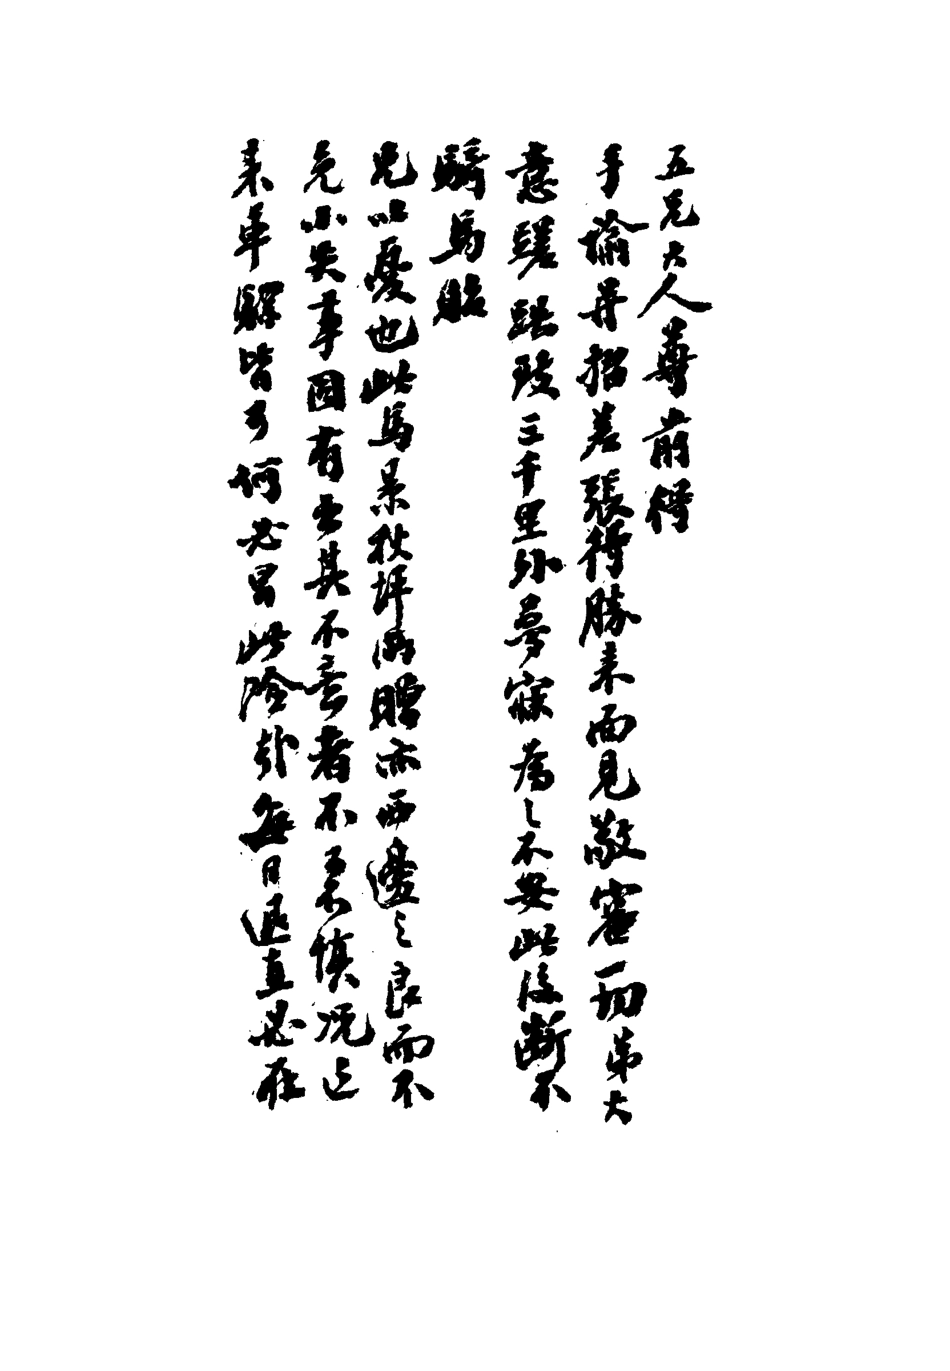 五兄大人尊前得
手諭并摺差張得勝来面見敬審一切弟大
意蹉跌致三千里外夢寐為〻不安此後斷不
騎馬貽
兄以憂也此馬景秋坪所贈亦西邊之良而不
免小失事固有出其不意者不可不慎况近
来車驟皆可何必冒此險外每日退直是在